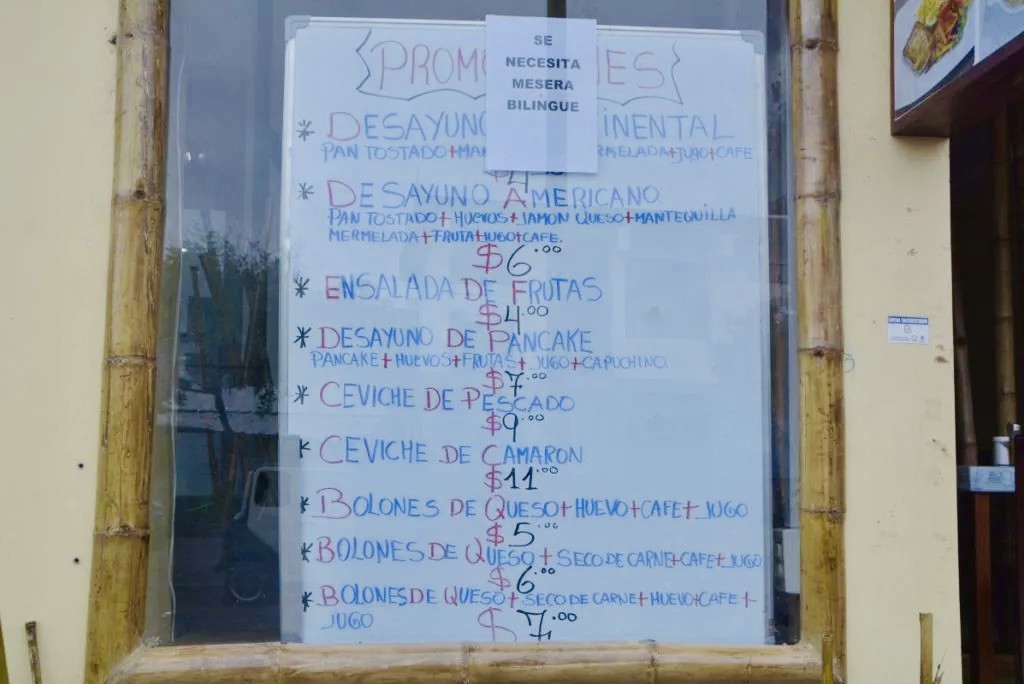 SE
NECESITA
MESERA
BILINGUE
* DESAYUNO INENTAL
PAN TOSTADO+ +JUGO+CAFE
* DESAYUNO AMERICANO.
PAN TOSTADO+ HUEVOS+ JAMON QUESO+MANTEQUILLA
MERMELADA+FRUTA+JUGO+CAFE.
$6.00
* ENSALADA DE FRUTAS
$4.00
* DESAYUNO DE PANCAKE
PANCAKE+HUEVOS+FRUTAS+JUGO+CAPUCHINO.
$7.00
* CEVICHE DE PESCADO
$9.00
* CEVICHE DE CAMARON
$11.00
* BOLONES DE QUESO+HUEVO+CAFE+JUGO
$5.00
* BOLONES DE QUESO+SECO DE CARNE+CAFE+JUGO
$6.00
* BOLONES DE QUESO+SECO DE CARNE+HUEVO+CAFE+
JUGO
$7.00